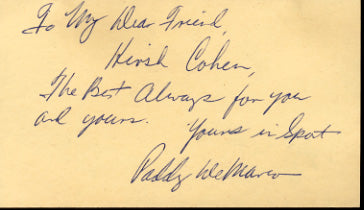 To My Dear Friend,
Hirsh Cohen,
The Best Always for you
and yours. Yours in Sport
Paddy DeMarco